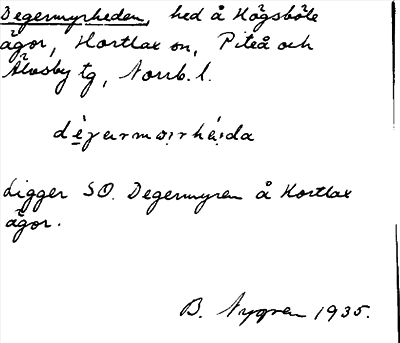 Degermyrheden, hed å Högsböle
ägor, Hortlax sn, Piteå och
Älvsby tg, Norrb. l.
Ligger SO. Degermyren å Hortlax
ägor.
B. Nygren 1935.